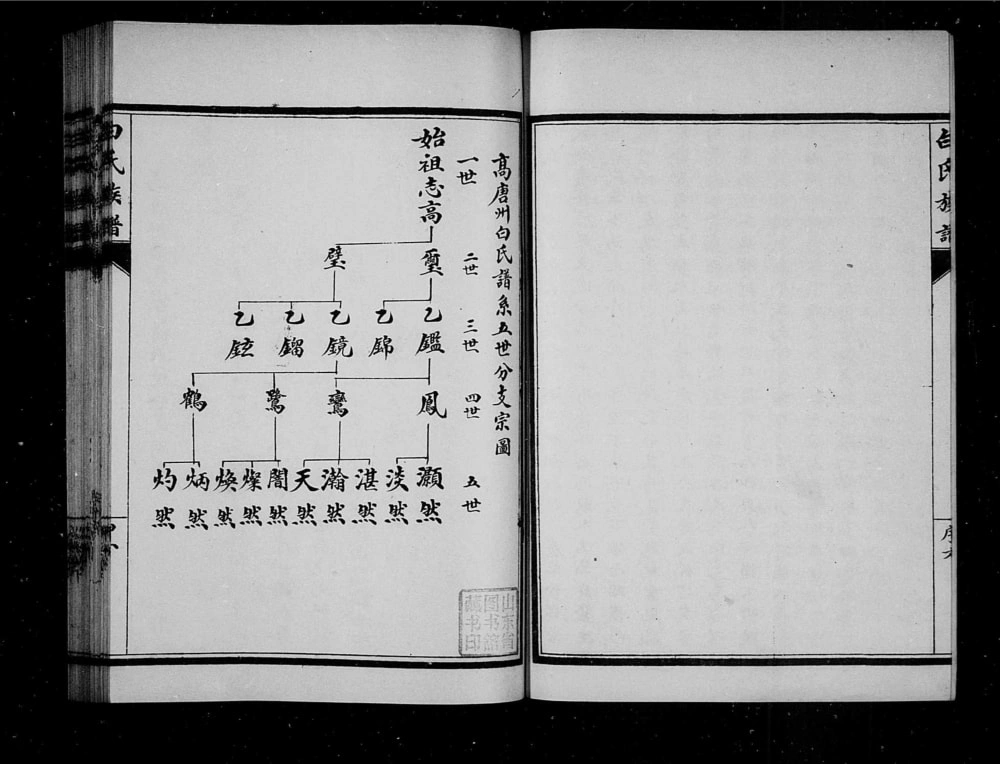 白氏族譜
序六
高唐州白氏譜系五世分支宗圖
一世
二世
三世
四世
五世
始祖志高
璽
璧
乙鑑
乙錦
乙鏡
乙鎦
乙鉉
鳳
鸞
鷺
鶴
灝然
淡然
湛然
瀚然
天然
闇然
燦然
煥然
炳然
灼然
白氏族譜
山东省
图书馆
藏书印